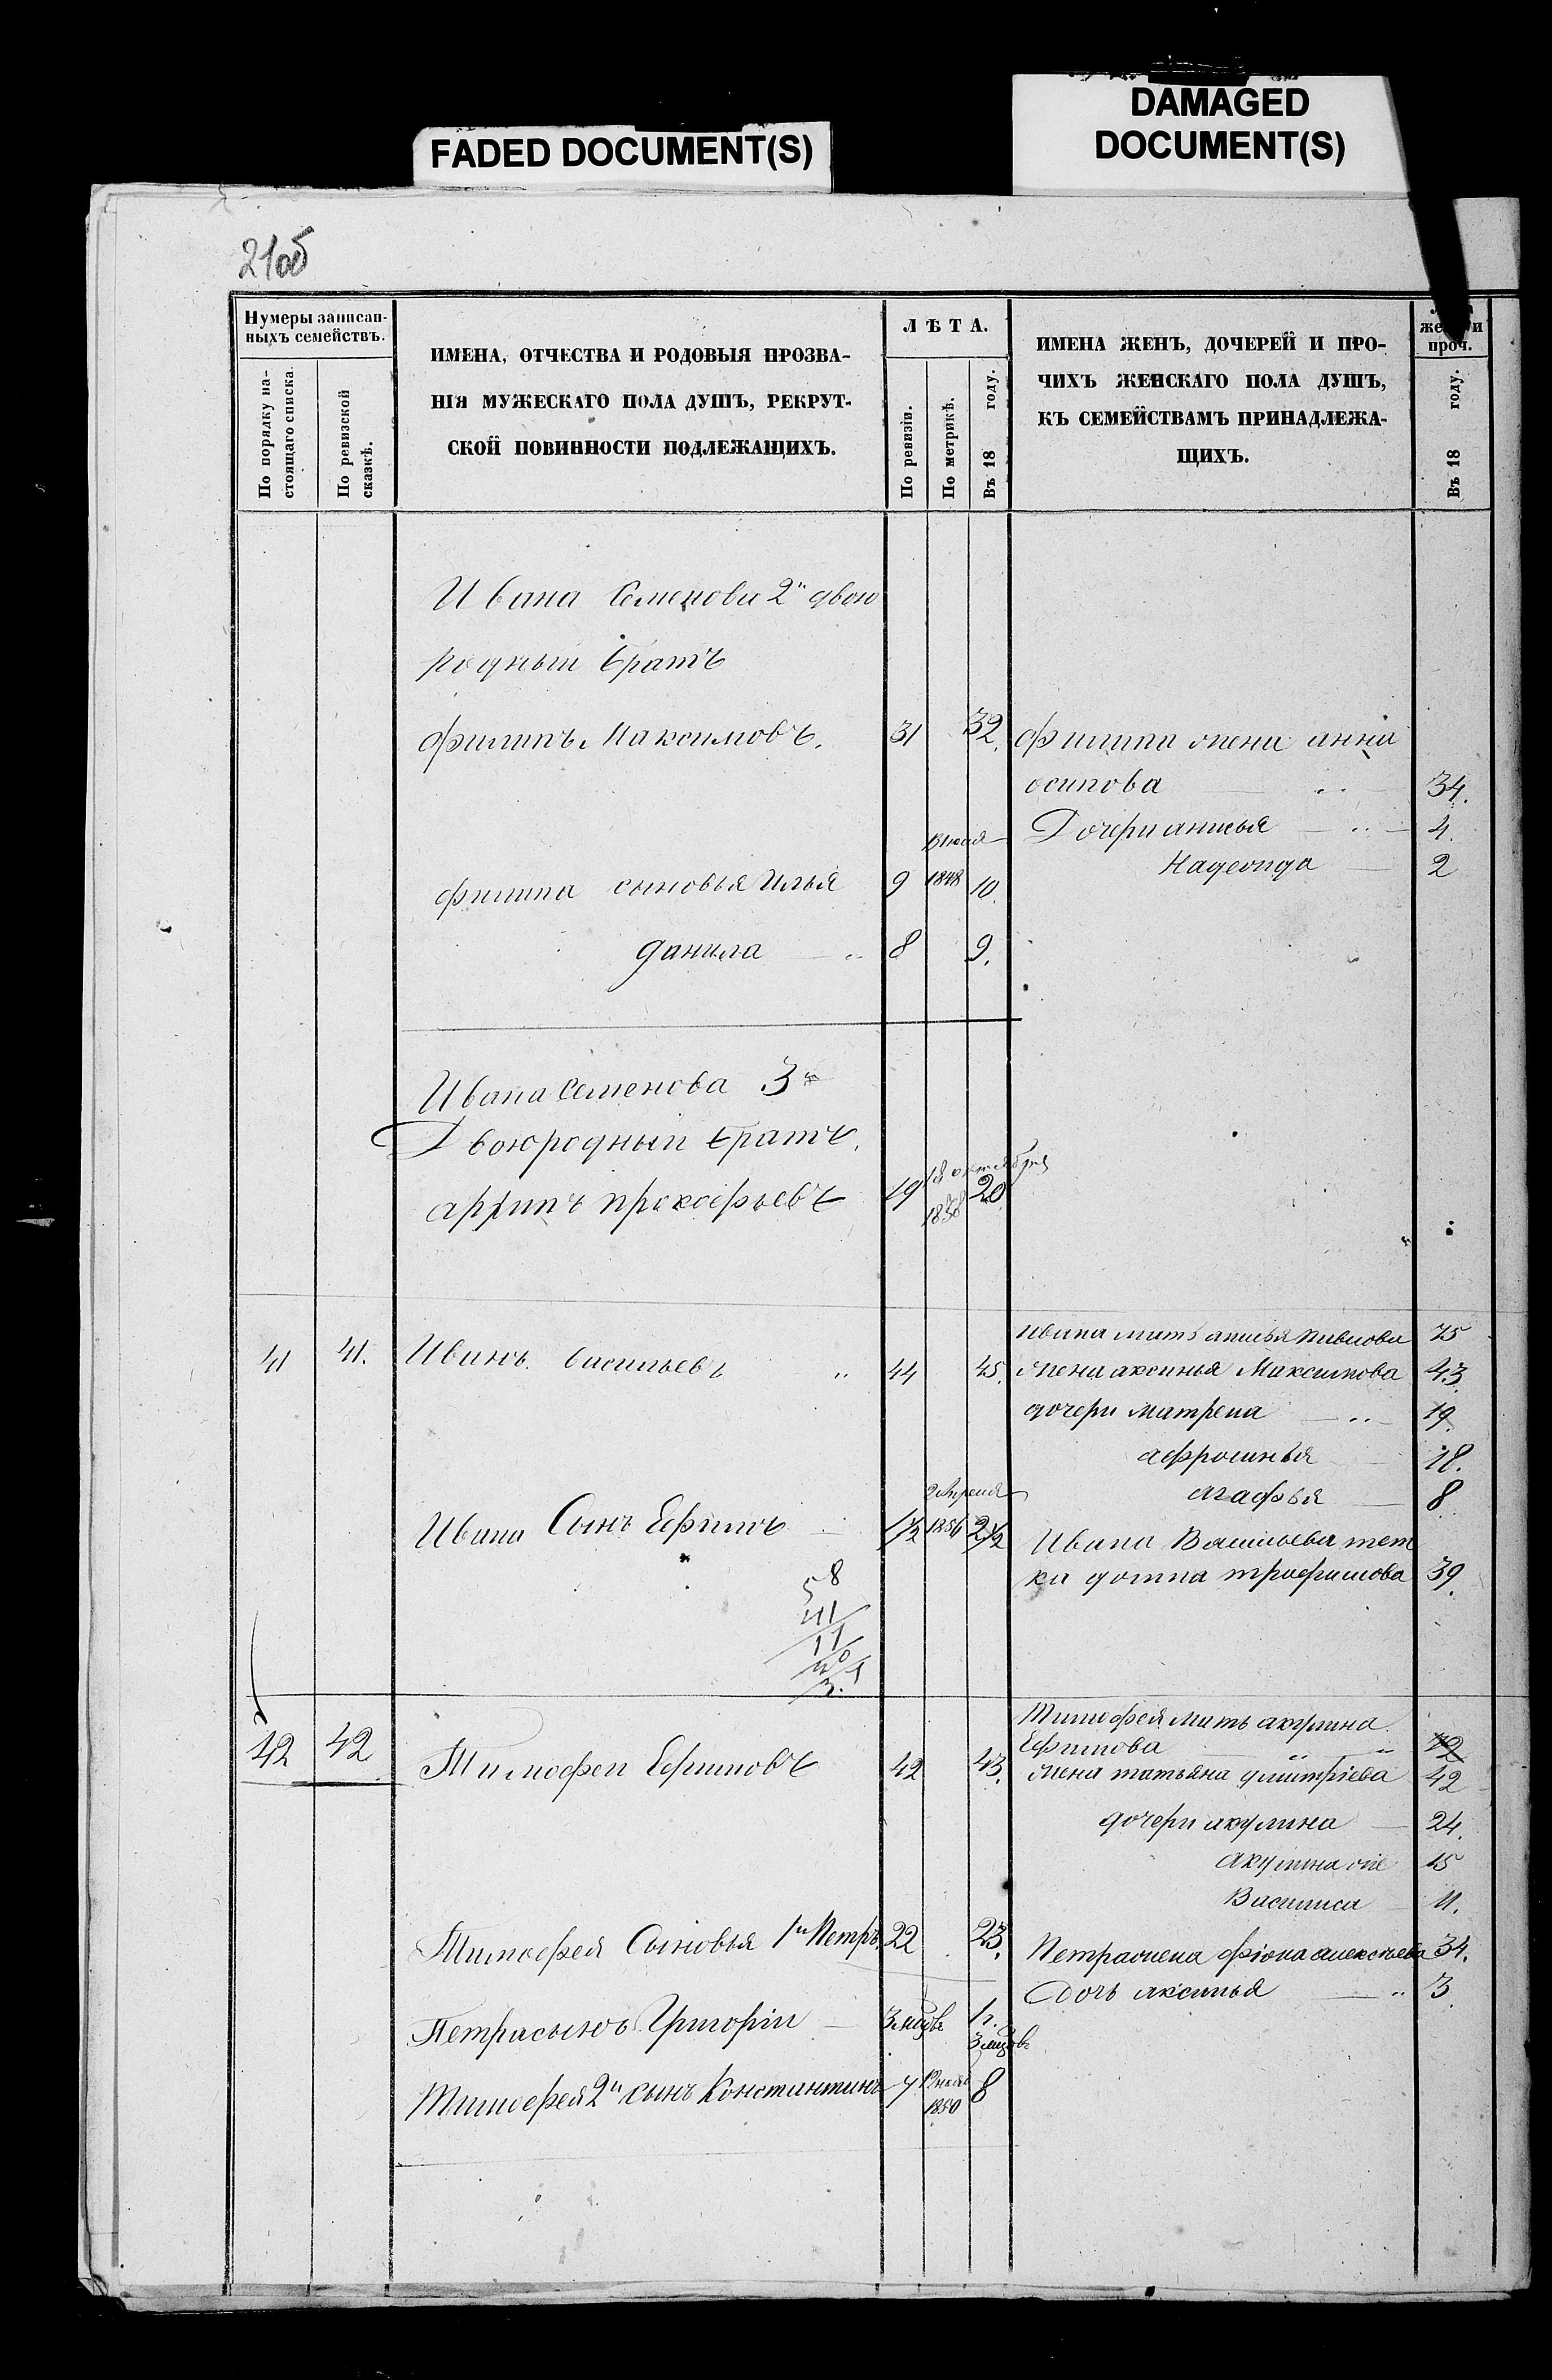 FADED DOCUMENT(S)
DAMAGED
DOCUMENT(S)
21об
Нумеры записан-
ныхъ семействъ.
По порядку на-
стоящаго списка.
По ревизской
сказкѣ.
ИМЕНА, ОТЧЕСТВА И РОДОВЫЯ ПРОЗВА-
НІЯ МУЖЕСКАГО ПОЛА ДУШЪ, РЕКРУТ-
СКОЙ ПОВИННОСТИ ПОДЛЕЖАЩИХЪ.
ЛѢТА.
По ревизіи.
По метрикѣ.
Въ 18 году.
ИМЕНА ЖЕНЪ, ДОЧЕРЕЙ И ПРО-
ЧИХЪ ЖЕНСКАГО ПОЛА ДУШЪ,
КЪ СЕМЕЙСТВАМЪ ПРИНАДЛЕЖА-
ЩИХЪ.
проч.
Въ 18 году.
Ивана Семенова 2й двою
родный братъ
Филипъ Максимовъ. 31 32. Филипа жена анна
осипова 34.
Дочери анисья 4.
Надежда 2
Филипа сыновья Илья 9 1848 10.
данила 8 9.
Ивана Семенова 3й
Двоюродный братъ.
архипъ прокофьевъ 19 18 октября 1838 20
41 41. Иванъ васильевъ 44 45.
Ивана мать анисья павлова 75
жена аксинья Максимова 43.
дочери матрена 19.
афросинья 18.
агафья 8
Ивана Сынъ Ефимъ 1½ 2 апреля 1856 2½
Ивана Васильева тет
ка домна трофимова 39.
58
41
11
3.
42 42 Тимофей Ефимовъ 42 43.
Тимофея мать акулина
Ефимова 72
жена татьяна дмитріева 42
дочери акулина 24.
акулина же 15
Василиса 11.
Тимофея Сыновья 1й Петръ 22 23.
Петра жена фіона алексѣева 34.
Дочь аксинья 3
Петра сынъ Григорій 3 мцвъ 1 г. 3 мцвъ
Тимофея 2й сынъ Константинъ 7 1850 8